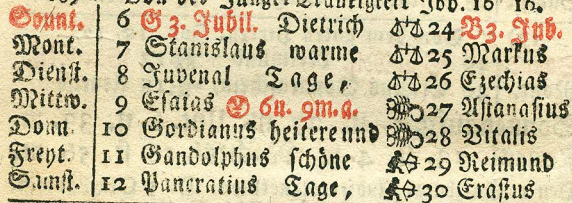 Sonnt. 6 G 3. Jubil. Dietrich ♎ 24 B 3. Jub.
Mont. 7 Stanislaus warme ♎ 25 Markus
Dienst. 8 Juvenal Tage, ♎ 26 Ezechias
Mittw. 9 Esaias 6u. 9m.a. ♏ 27 Astanasius
Donn 10 Gordianus heitere und ♏ 28 Vitalis
Freyt. 11 Gandolphus schöne ♐ 29 Reimund
Samst. 12 Pancratius Tage, ♐ 30 Erastus